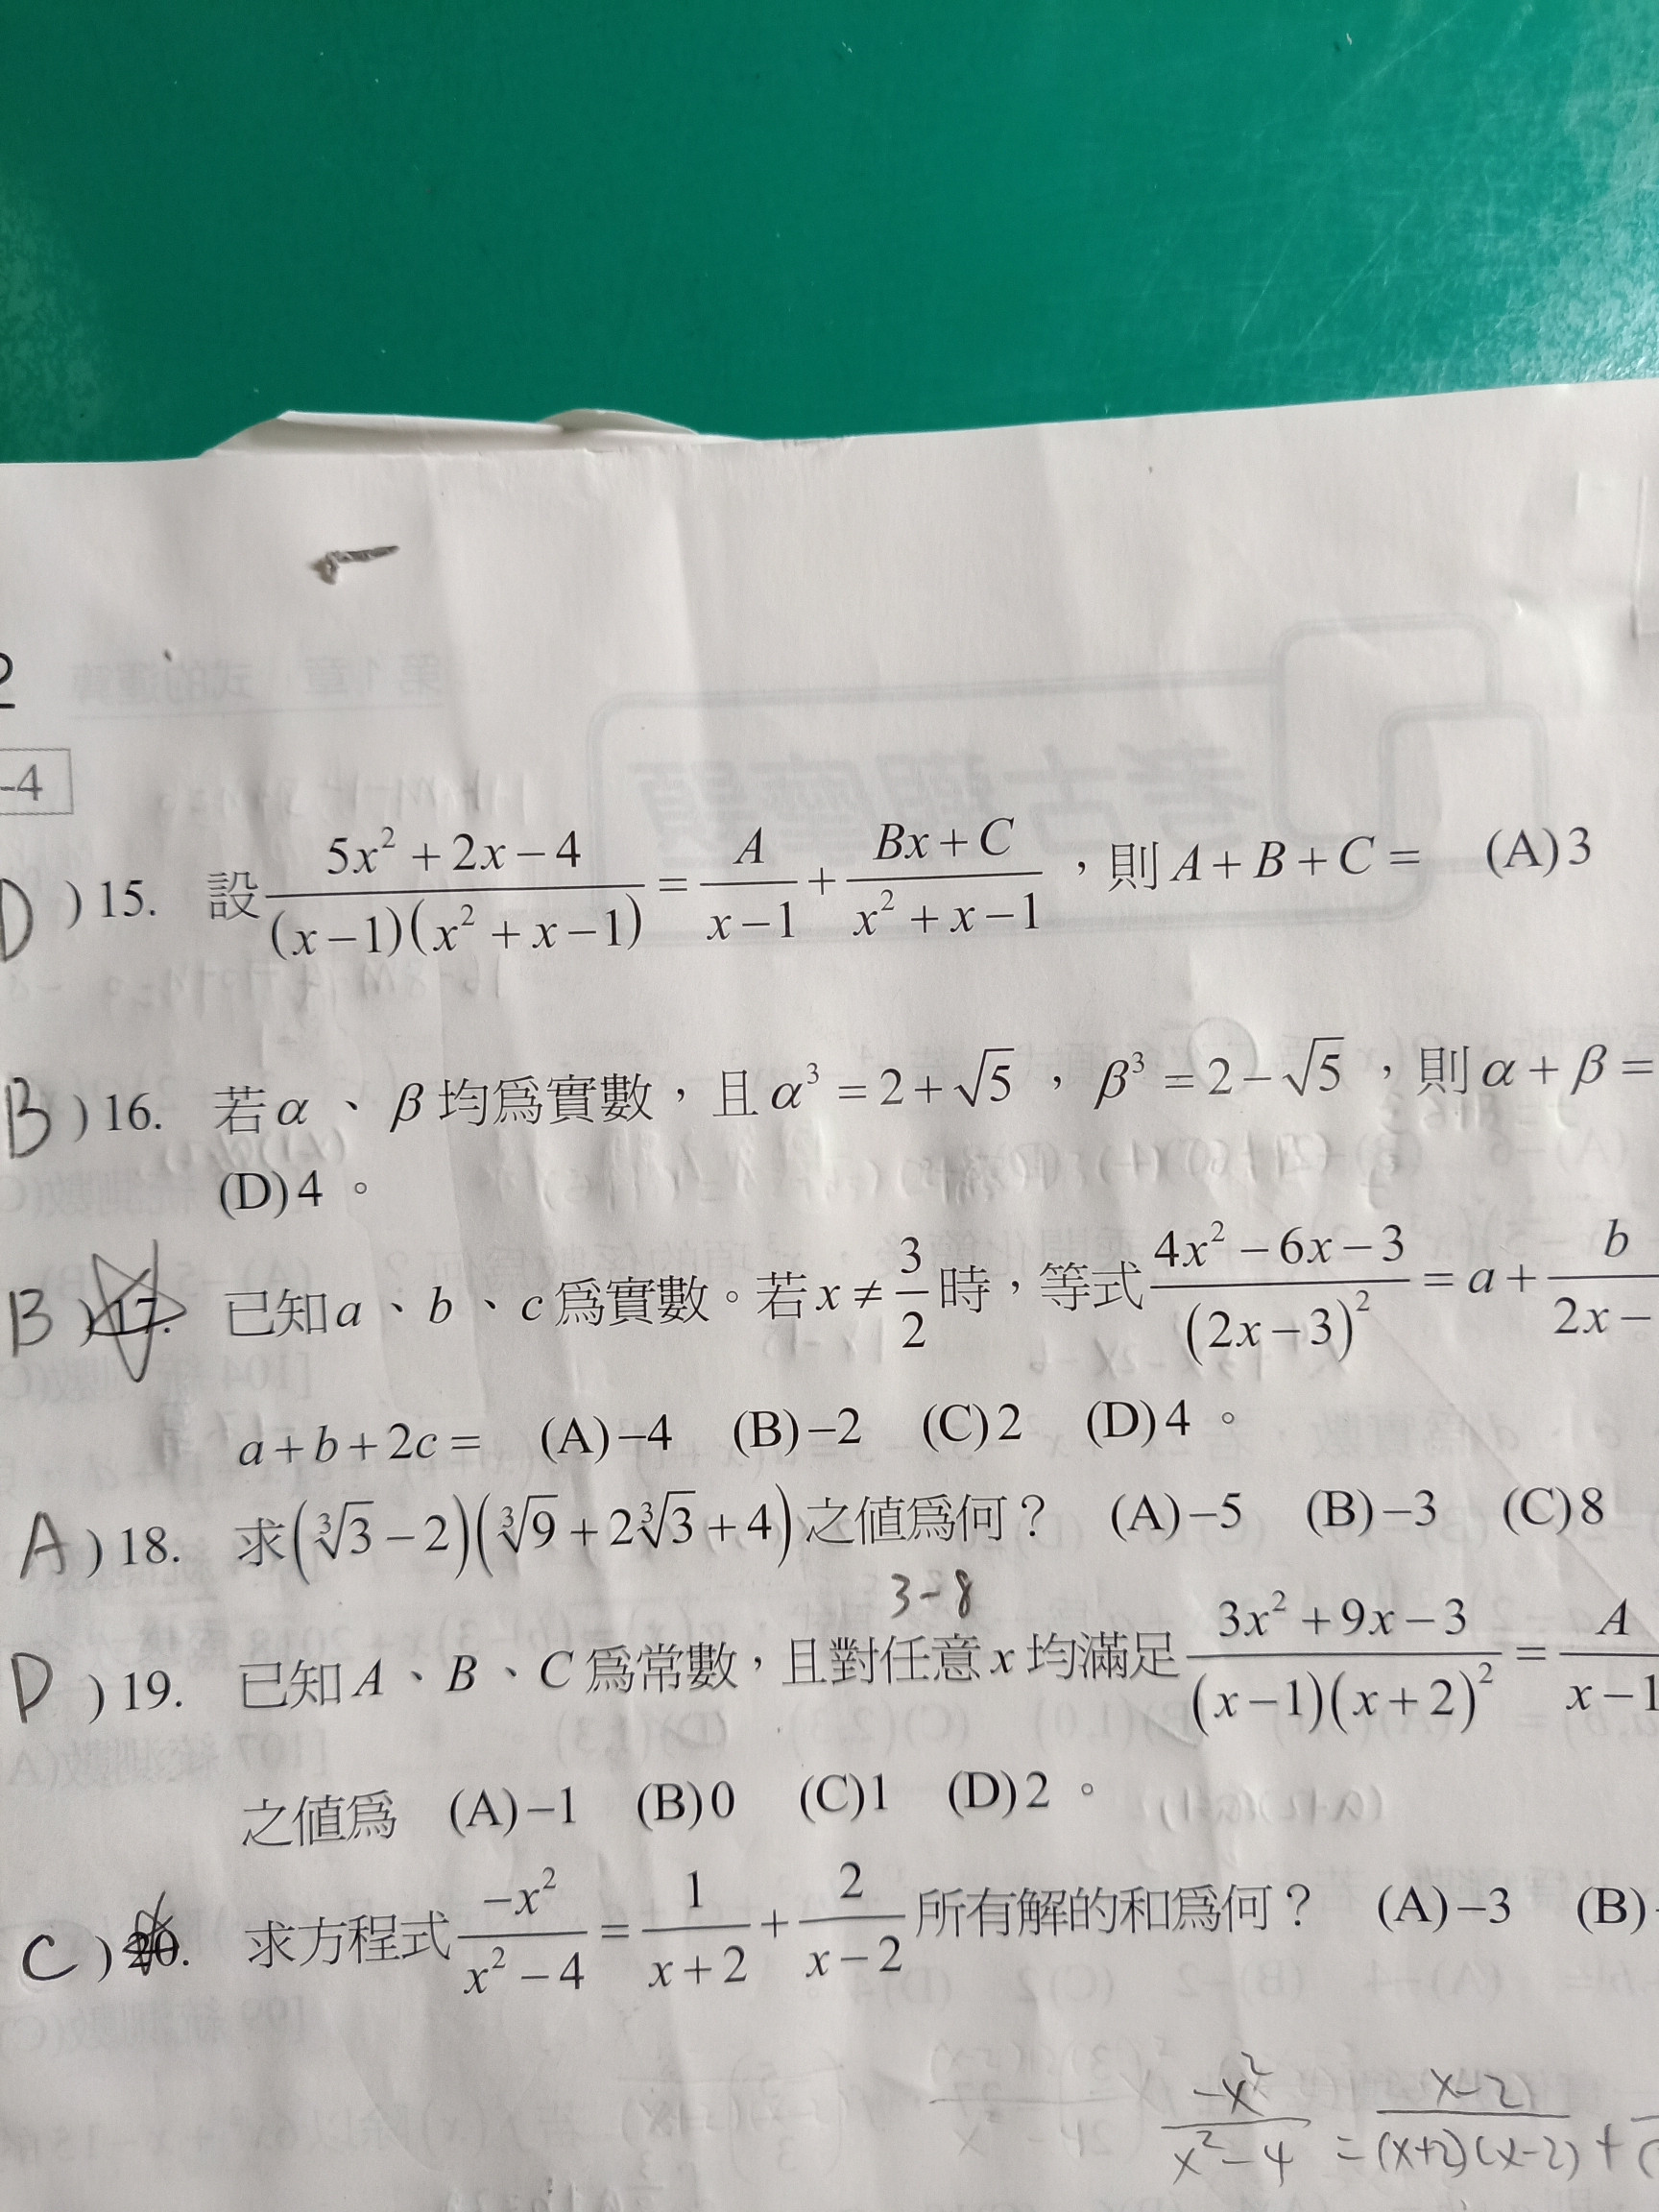 2
-4
D ) 15. 設 (5x² + 2x − 4)/((x−1)(x² + x − 1)) = A/(x−1) + (Bx + C)/(x² + x − 1) ,則 A + B + C = (A) 3
B ) 16. 若 α 、 β 均為實數,且 α³ = 2 + √5 , β³ = 2 − √5 ,則 α + β =
(D) 4 。
B ) 17. 已知 a 、 b 、 c 為實數。若 x ≠ 3/2 時,等式 (4x² − 6x − 3)/(2x − 3)² = a + b/(2x −
a + b + 2c = (A) −4 (B) −2 (C) 2 (D) 4 。
A ) 18. 求 (∛3 − 2)(∛9 + 2∛3 + 4) 之值為何? (A) −5 (B) −3 (C) 8
3-8
D ) 19. 已知 A 、 B 、 C 為常數,且對任意 x 均滿足 (3x² + 9x − 3)/((x−1)(x+2)²) = A/(x−1
之值為 (A) −1 (B) 0 (C) 1 (D) 2 。
C ) 20. 求方程式 −x²/(x² − 4) = 1/(x + 2) + 2/(x − 2) 所有解的和為何? (A) −3 (B)
-x²/(x²-4) = (x-2)/((x+2)(x-2)) +